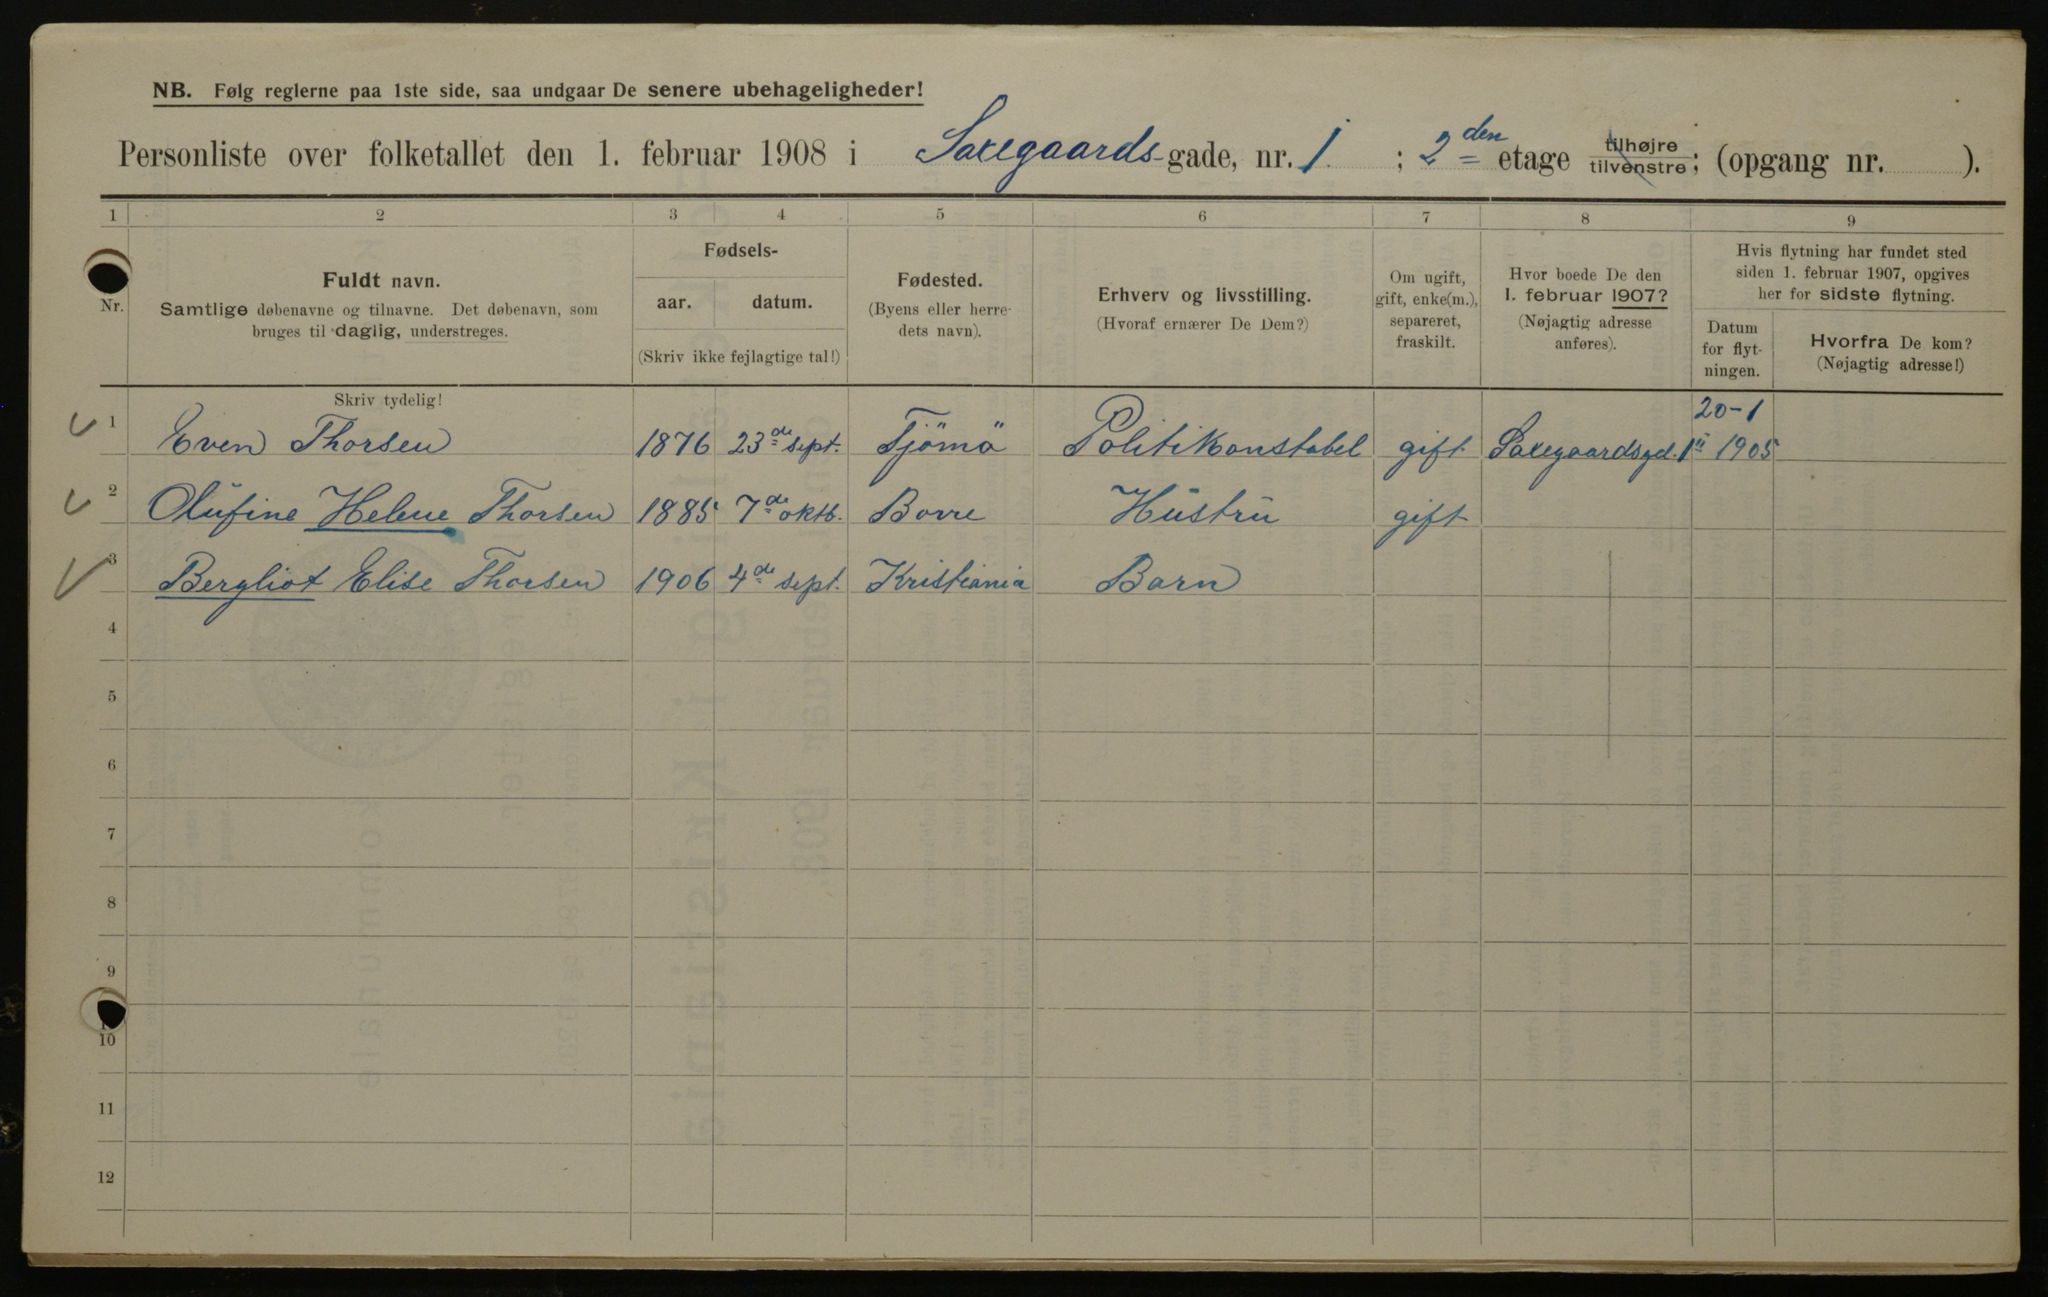 NB. Følg reglerne paa 1ste side, saa undgaar De senere ubehageligheder!
Personliste over folketallet den 1. februar 1908 i Saxegaards-gade, nr. 1 ; 2den etage tilhøjre tilvenstre; (opgang nr. ).
1 2 3 4 5 6 7 8 9
Nr.
Fuldt navn.
Samtlige døbenavne og tilnavne. Det døbenavn, som
bruges til daglig, understreges.
Skriv tydelig!
Fødsels-
aar. datum.
(Skriv ikke fejlagtige tal!)
Fødested.
(Byens eller herre-
dets navn).
Erhverv og livsstilling.
(Hvoraf ernærer De Dem?)
Om ugift,
gift, enke(m.),
separeret,
fraskilt.
Hvor boede De den
1. februar 1907?
(Nøjagtig adresse
anføres).
Hvis flytning har fundet sted
siden 1. februar 1907, opgives
her for sidste flytning.
Datum
for flyt-
ningen.
Hvorfra De kom?
(Nøjagtig adresse!)
20-1
1 Even Thorsen 1876 23de sept. Tjömö Politikonstabel gift Saxegaardsgd. 1II 1905
2 Olufine Helene Thorsen 1885 7de oktb. Borre Hüstrü gift
3 Bergliot Elise Thorsen 1906 4de sept. Kristiania Barn
4
5
6
7
8
9
10
11
12